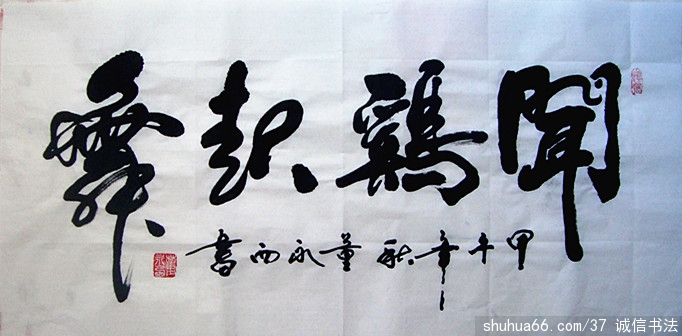 聞鷄起舞
甲午年秋董永西書
shuhua66.com/37 诚信书法